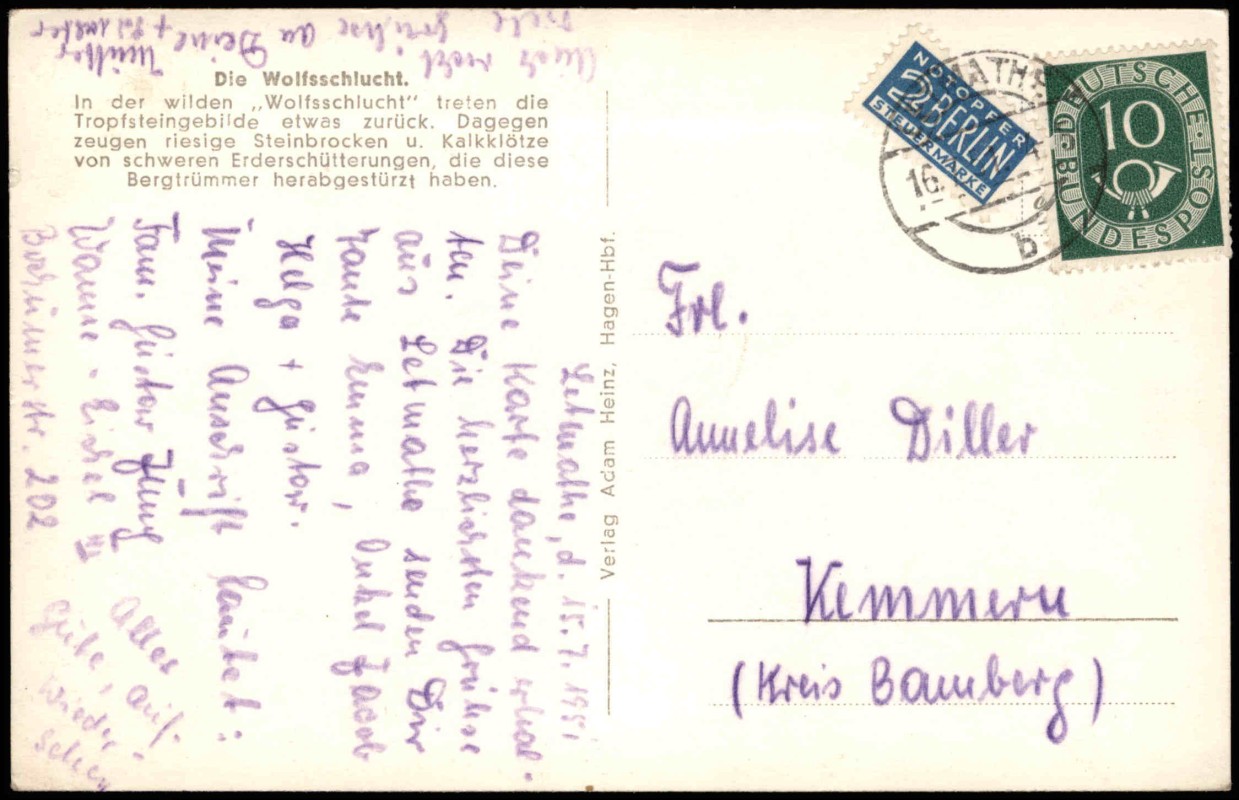 Die Wolfsschlucht.
In der wilden „Wolfsschlucht" treten die
Tropfsteingebilde etwas zurück. Dagegen
zeugen riesige Steinbrocken u. Kalkklötze
von schweren Erderschütterungen, die diese
Bergtrümmer herabgestürzt haben.
Letmathe, d. 15.7.1951
Deine Karte dankend erhal-
ten. Die herzlichsten Grüße
aus Letmathe senden Dir
Tante Emma, Onkel Jacob
Helga + Gustav.
Meine Anschrift lautet:
Fam. Gustav Jung
Wanne-Eickel III
Bochumerstr. 202
Alles
Gute, auf-
wieder-
sehen
Auch recht
viele Grüße an Deine
Mutter +
Verlag Adam Heinz, Hagen-Hbf.
NOTOPFER
2 BERLIN
STEUERMARKE
DEUTSCHE BUNDESPOST
10
16
b
Frl.
Annelise Diller
Kemmern
(Kreis Bamberg)